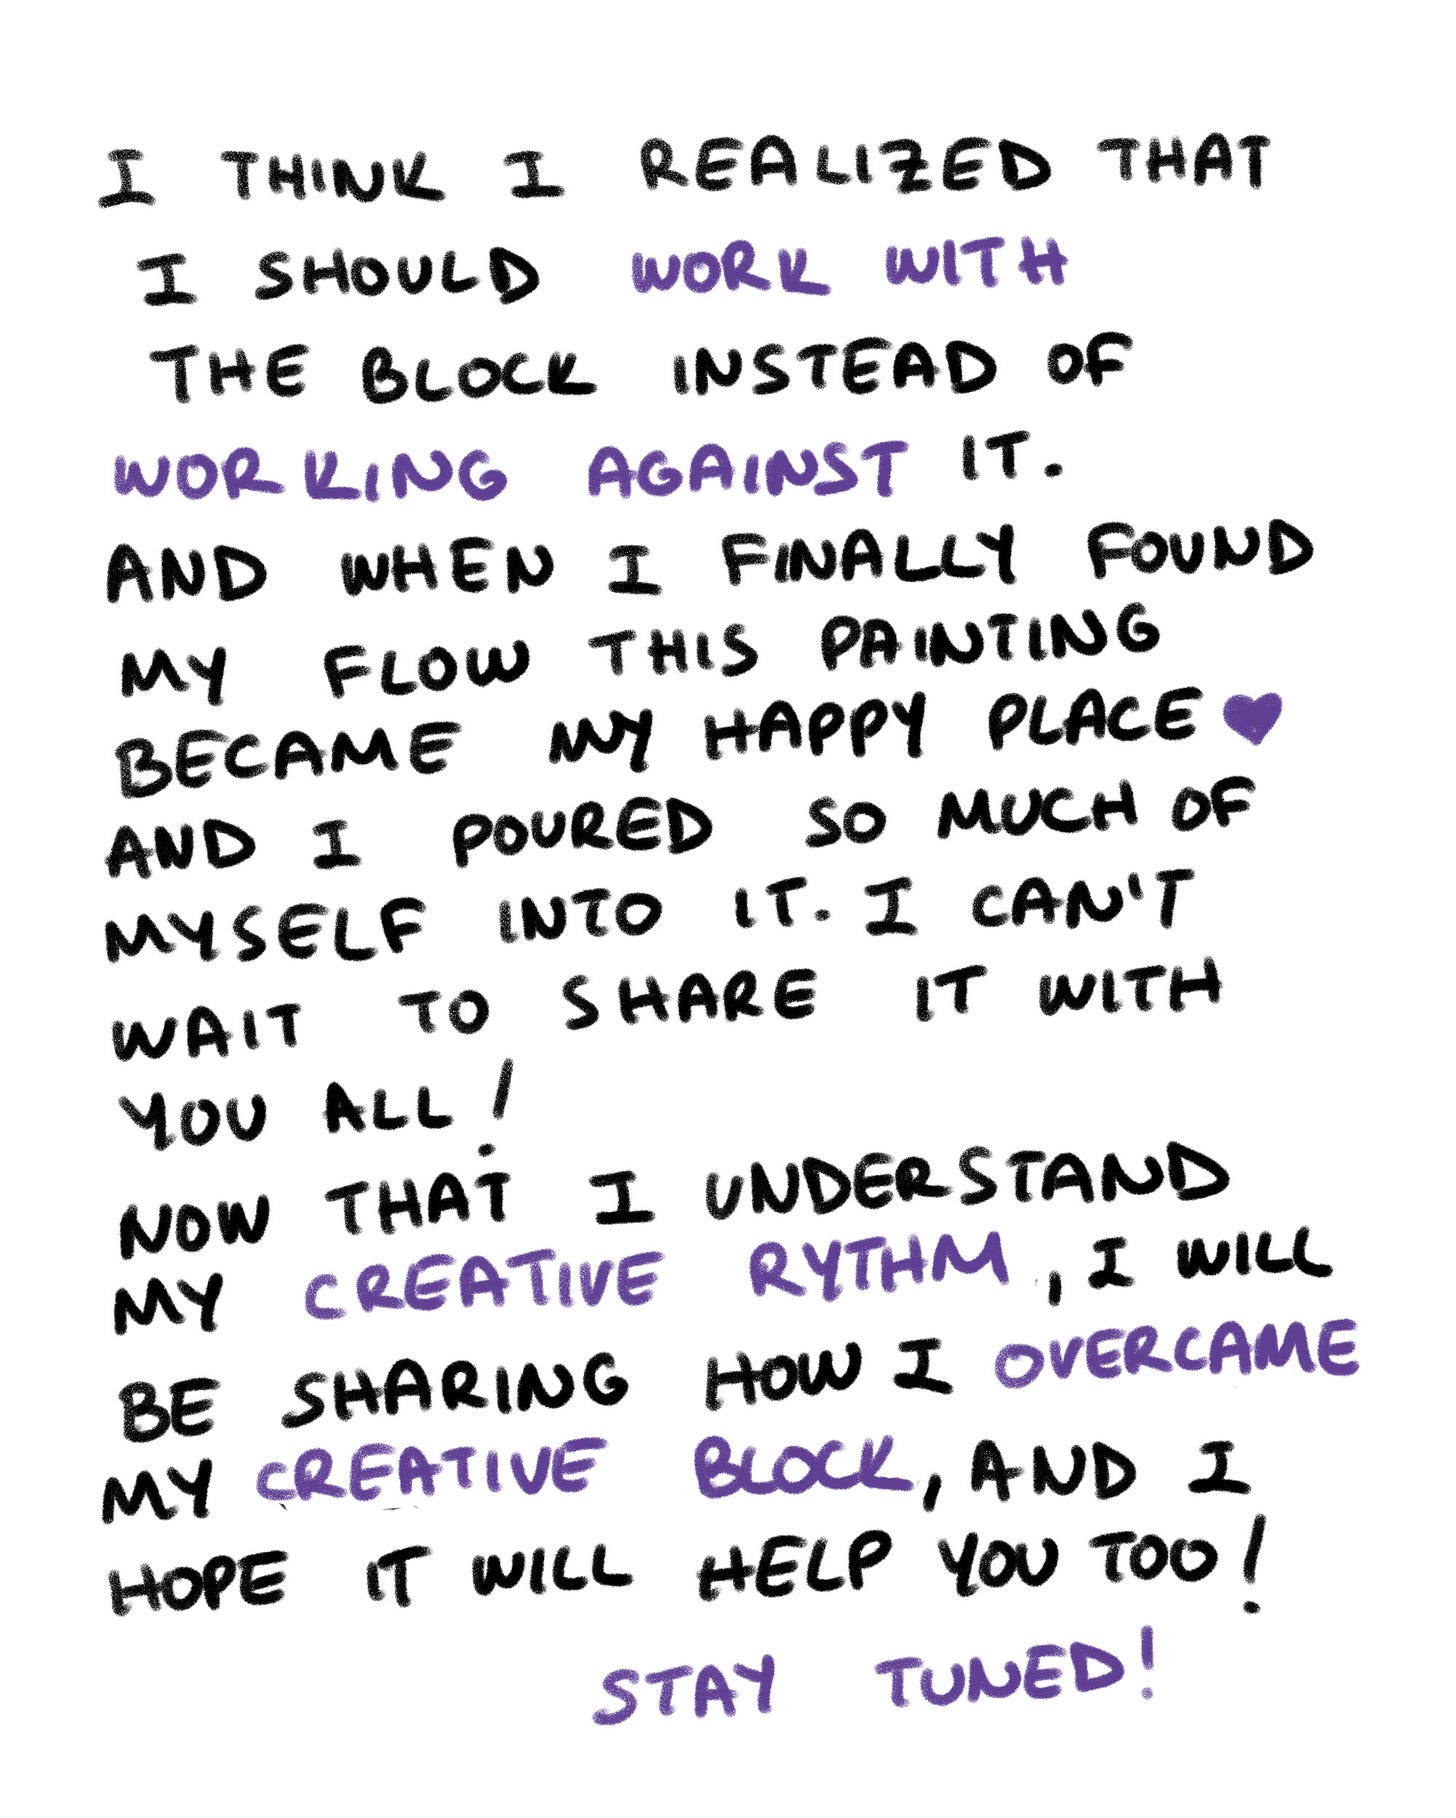 I THINK I REALIZED THAT
I SHOULD WORK WITH
THE BLOCK INSTEAD OF
WORKING AGAINST IT.
AND WHEN I FINALLY FOUND
MY FLOW THIS PAINTING
BECAME MY HAPPY PLACE 💜
AND I POURED SO MUCH OF
MYSELF INTO IT. I CAN'T
WAIT TO SHARE IT WITH
YOU ALL!
NOW THAT I UNDERSTAND
MY CREATIVE RYTHM, I WILL
BE SHARING HOW I OVERCAME
MY CREATIVE BLOCK, AND I
HOPE IT WILL HELP YOU TOO!
STAY TUNED!